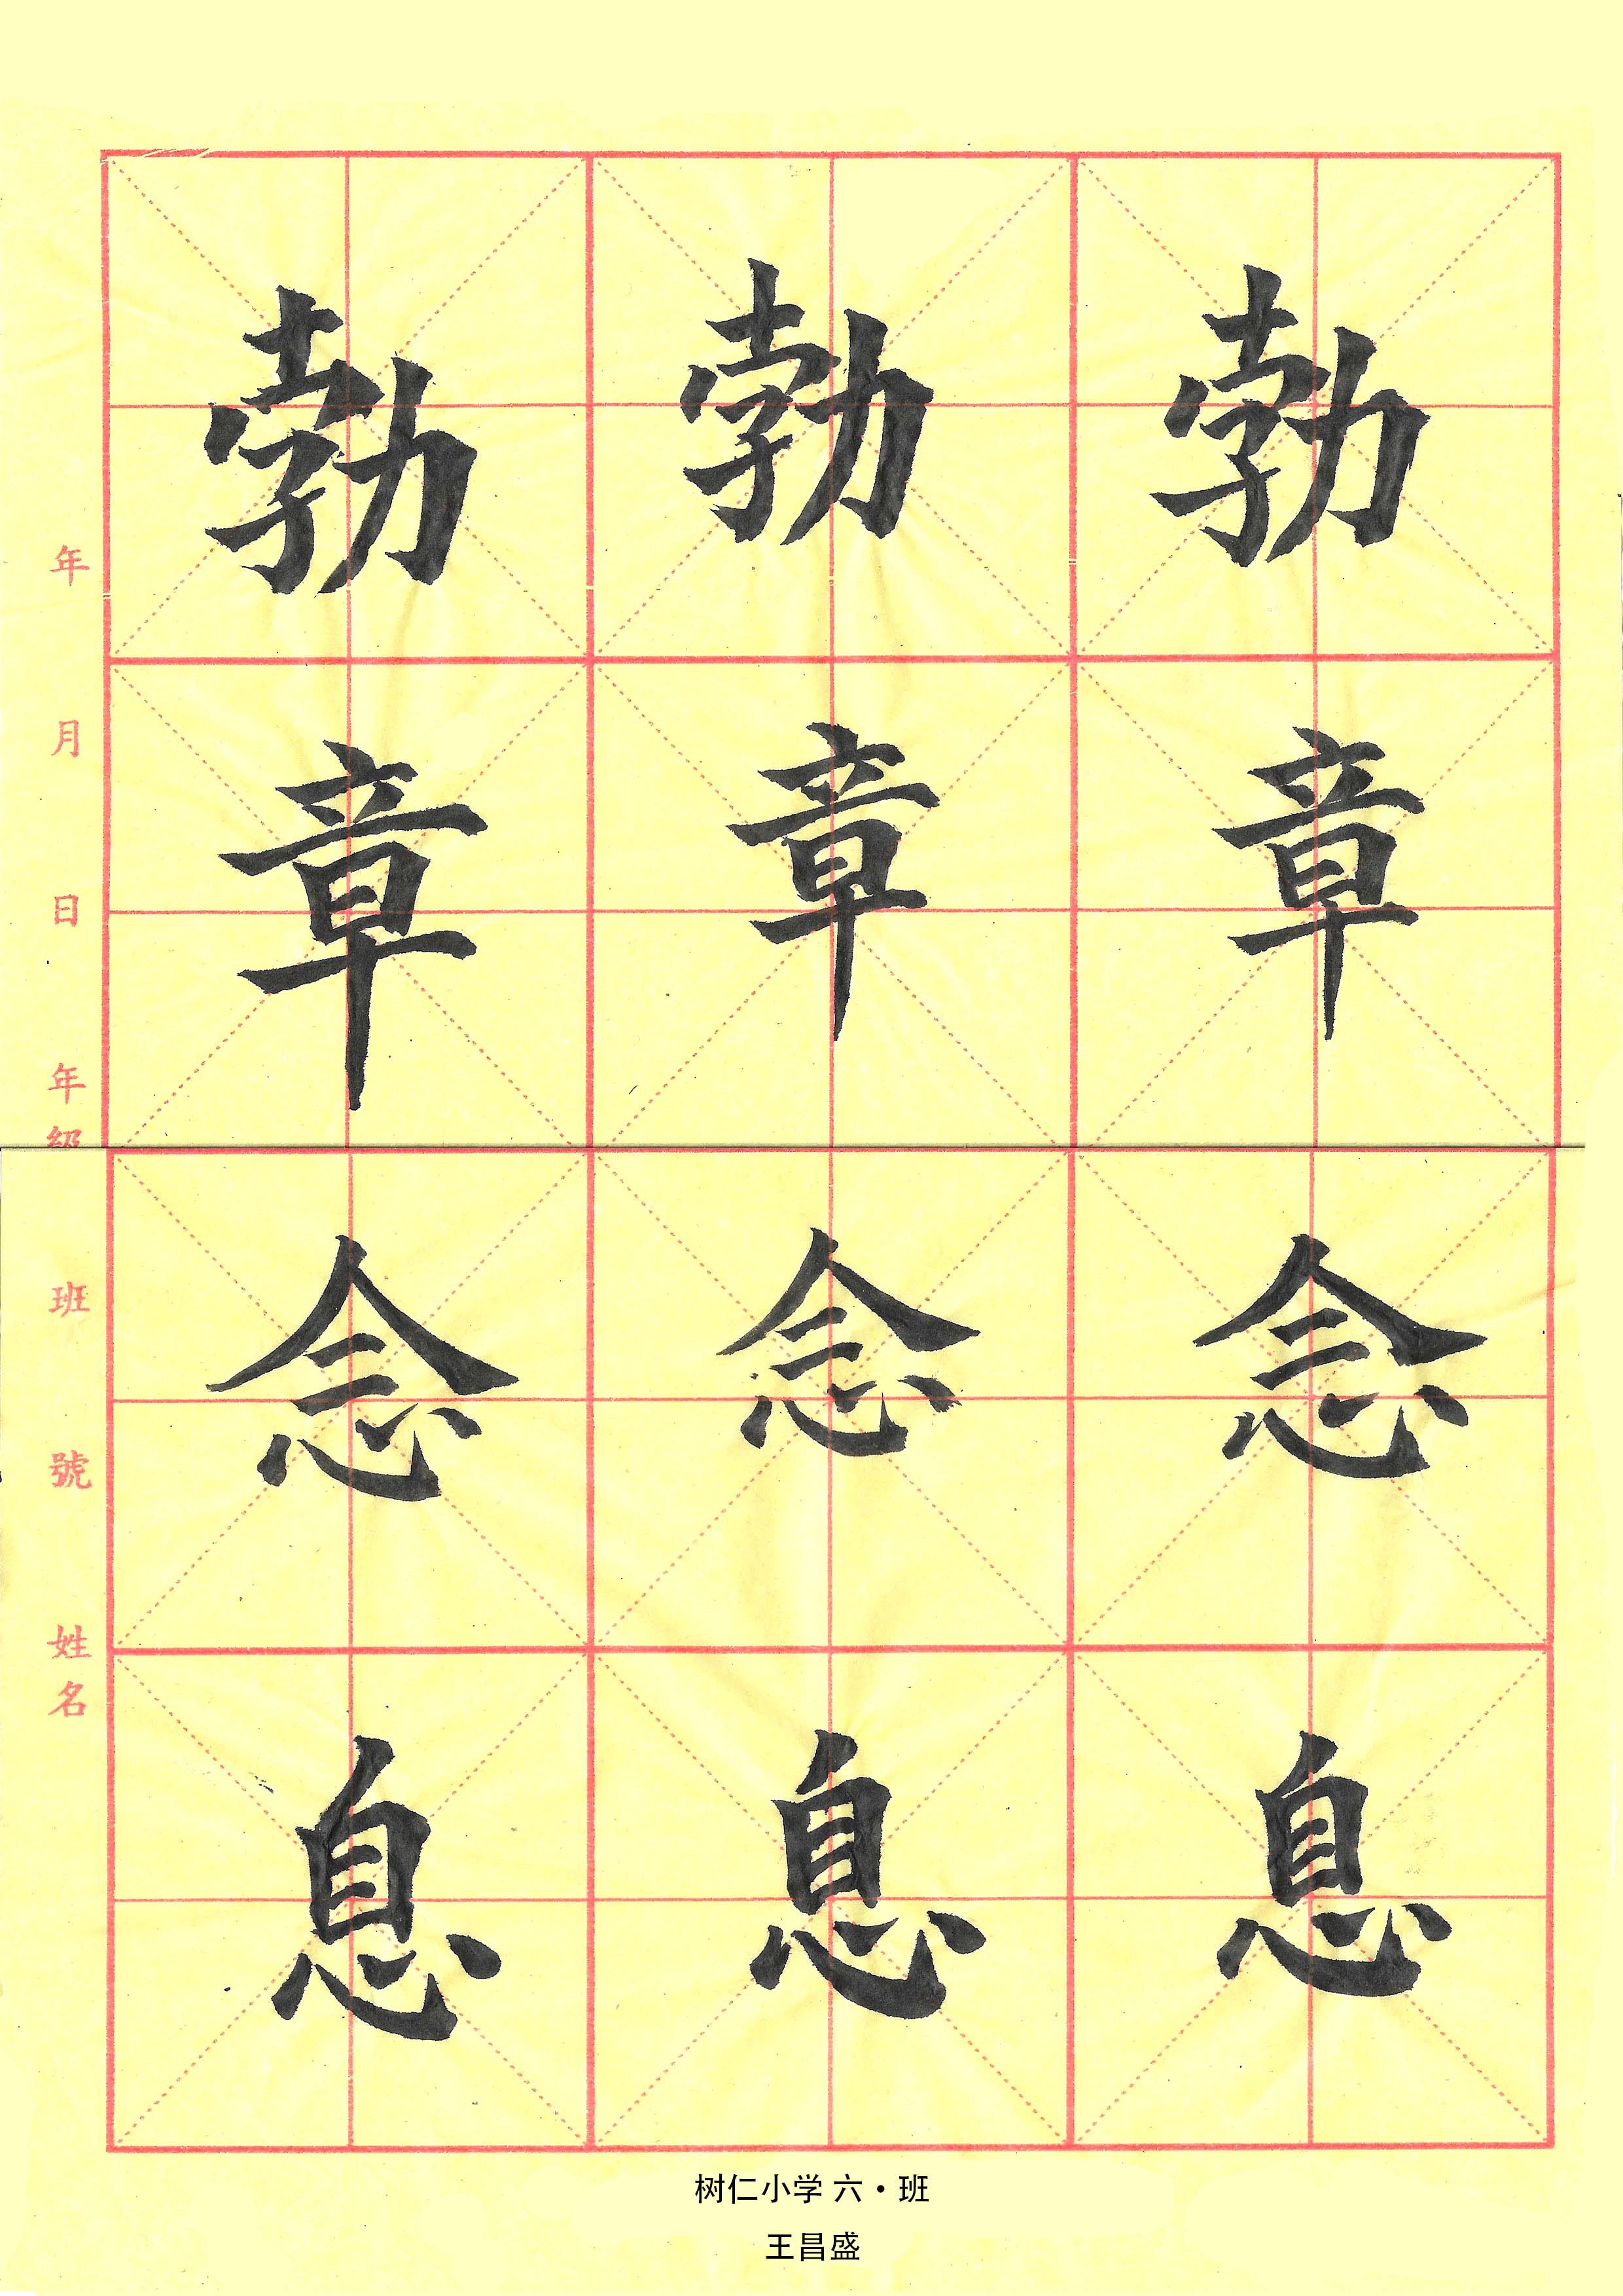 勃 勃 勃
章 章 章
念 念 念
息 息 息
年
月
日
年
級
班
號
姓
名
树仁小学 六·班
王昌盛